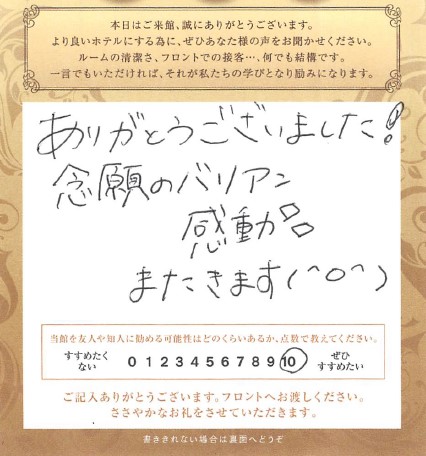 本日はご来館、誠にありがとうございます。
より良いホテルにする為に、ぜひあなた様の声をお聞かせください。
ルームの清潔さ、フロントでの接客…、何でも結構です。
一言でもいただければ、それが私たちの学びとなり励みになります。
ありがとうございました!
念願のバリアン
感動
またきます(^o^)
当館を友人や知人に勧める可能性はどのくらいあるか、点数で教えてください。
すすめたくない 0 1 2 3 4 5 6 7 8 9 10 ぜひすすめたい
ご記入ありがとうございます。フロントへお渡しください。
ささやかなお礼をさせていただきます。
書ききれない場合は裏面へどうぞ